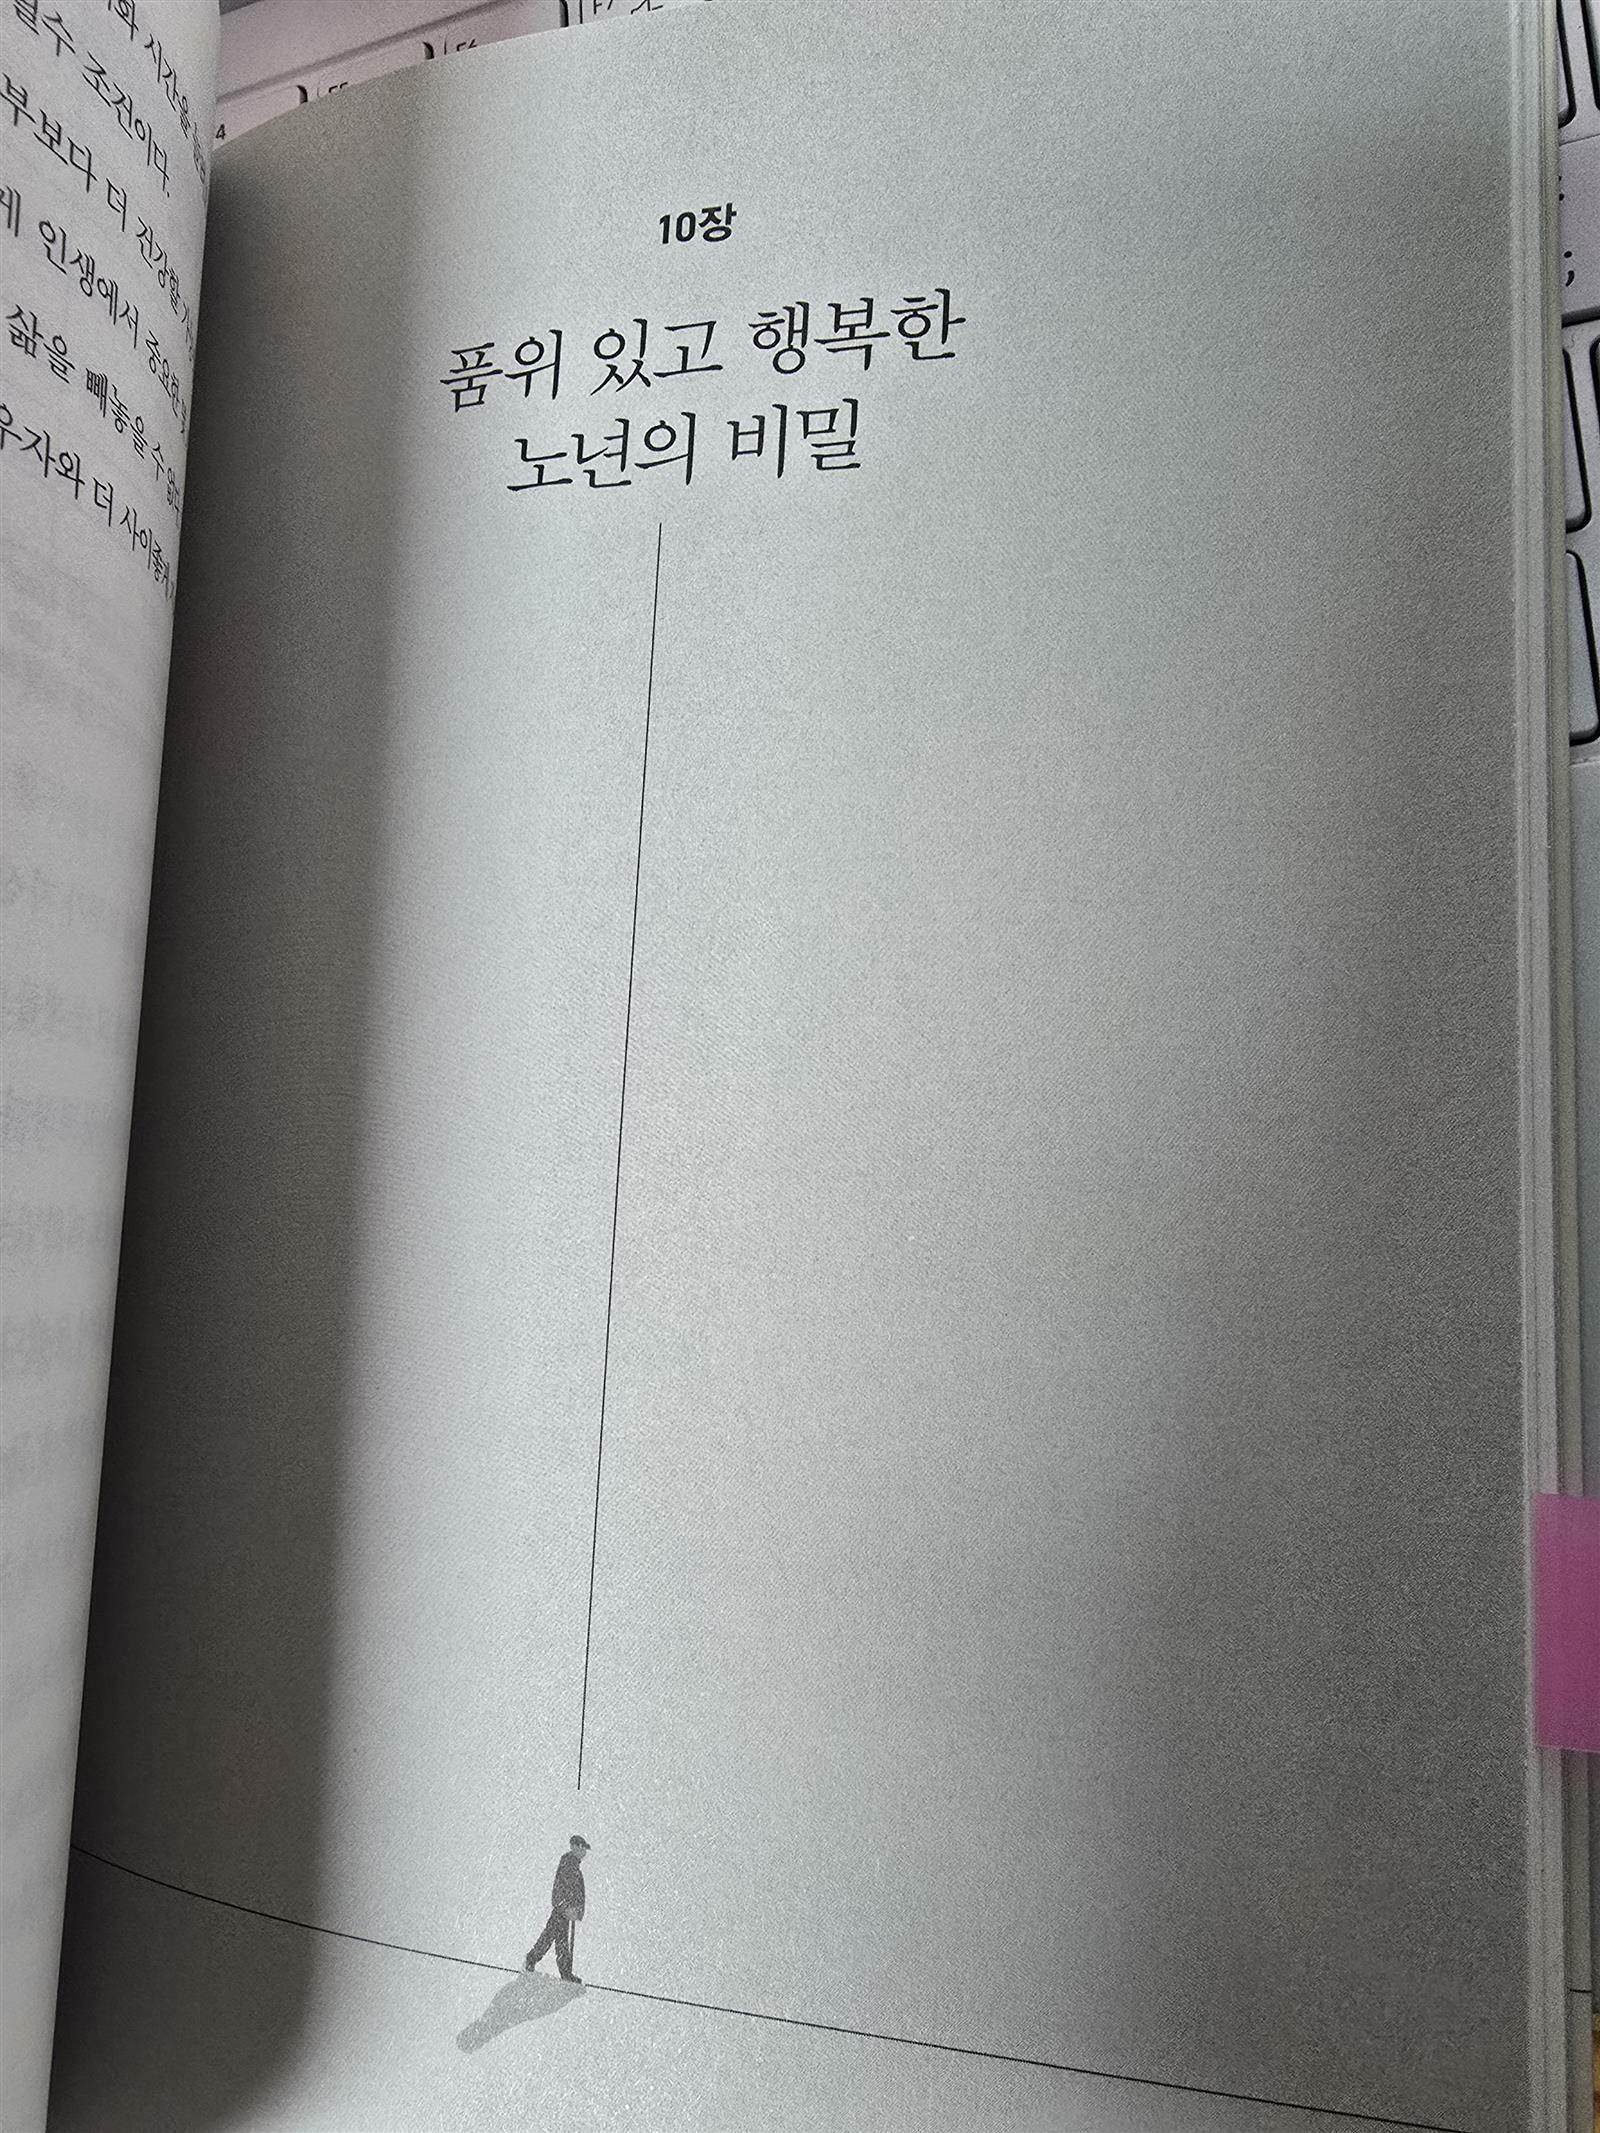 시간을
필수 조건이다.
부보다 더 건강할
인생에서 중요한
삶을 빼놓을 수 없다
우자와 더 사이좋게
10장
품위 있고 행복한
노년의 비밀